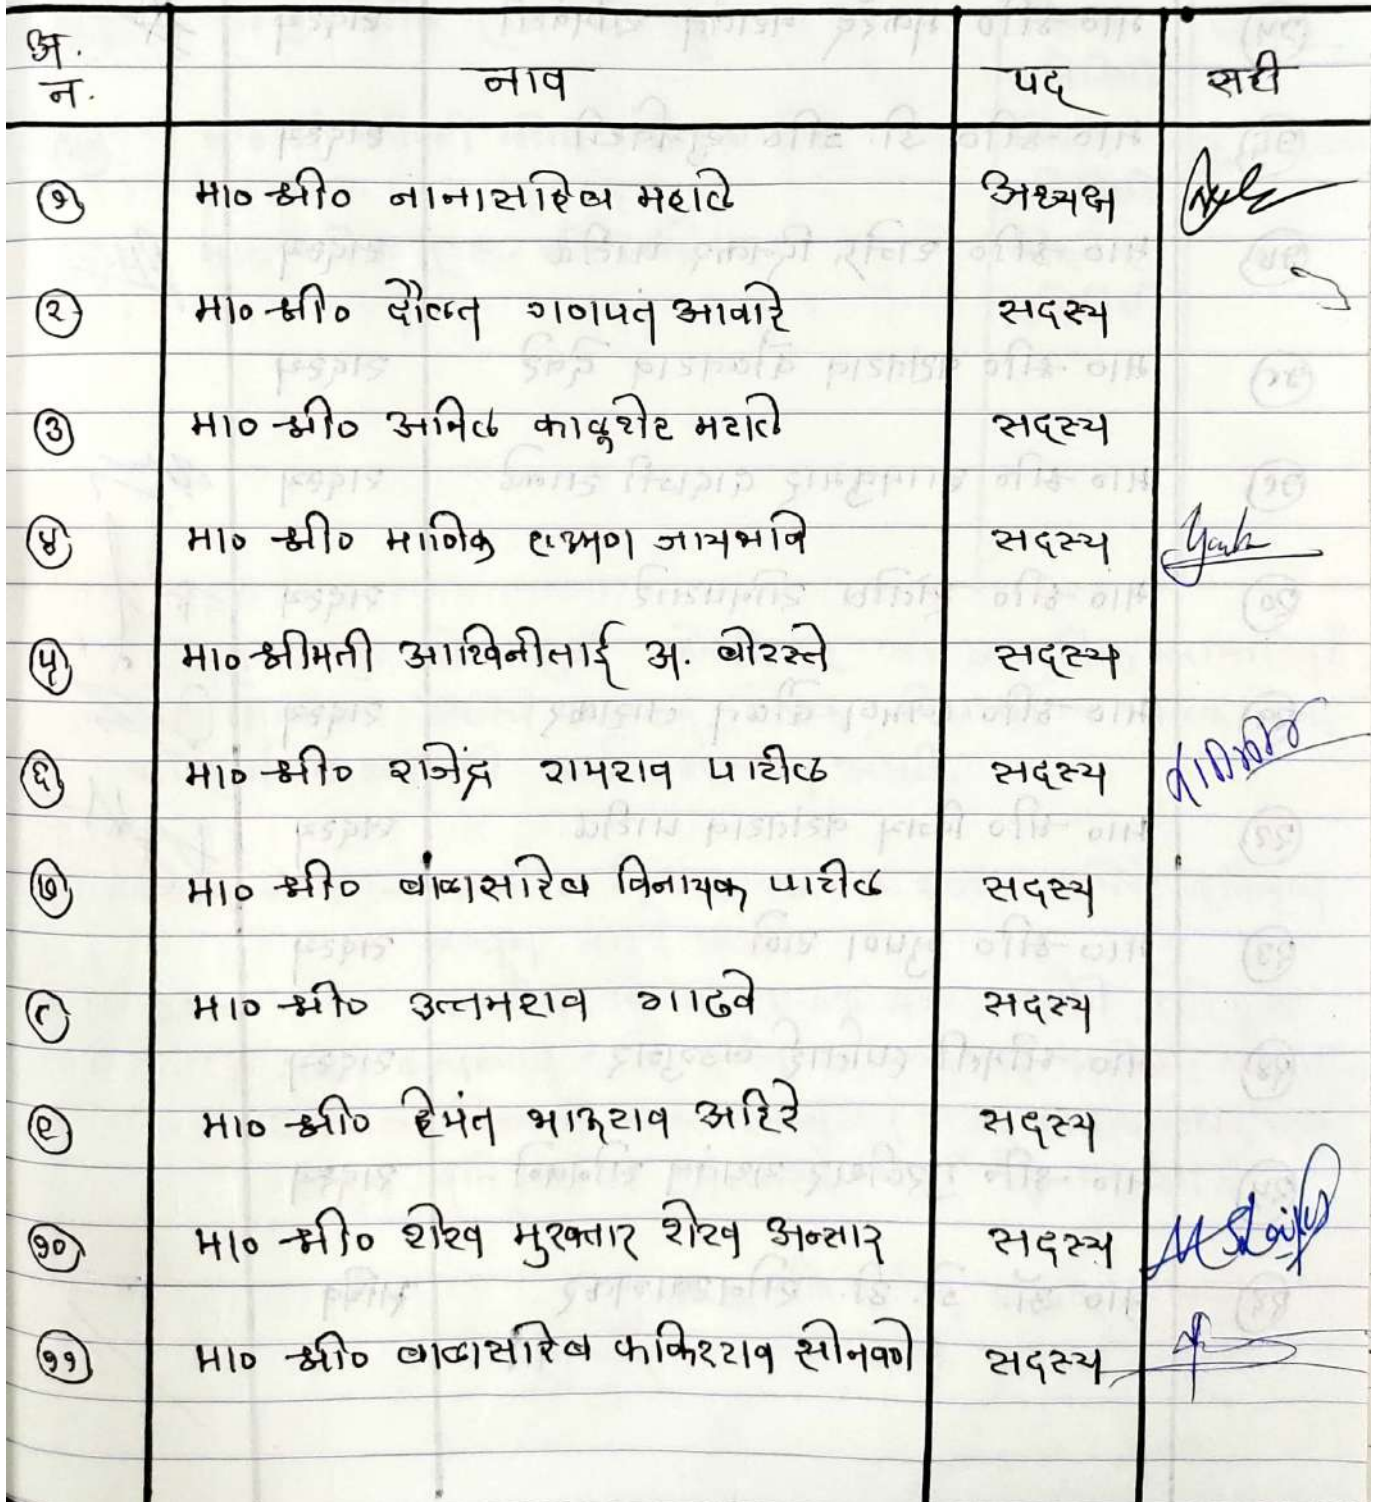 अ. न. नाव पद सही
१ मा० श्री० नानासाहेब महाले अध्यक्ष
२ मा० श्री० दौलत गणपत आवारे सदस्य
३ मा० श्री० अनिल काकुशेट महाले सदस्य
४ मा० श्री० माणिक लक्ष्मण जायभावे सदस्य
५ मा० श्रीमती आश्विनीताई अ. बोरस्ते सदस्य
६ मा० श्री० राजेंद्र रामराव पाटील सदस्य
७ मा० श्री० बाळासाहेब विनायक पाटील सदस्य
८ मा० श्री० उत्तमराव गाढवे सदस्य
९ मा० श्री० हेमंत भाऊराव अहिरे सदस्य
१० मा० श्री० शेख मुख्तार शेख अन्सार सदस्य
११ मा० श्री० बाळासाहेब फकिरराव सोनवणे सदस्य